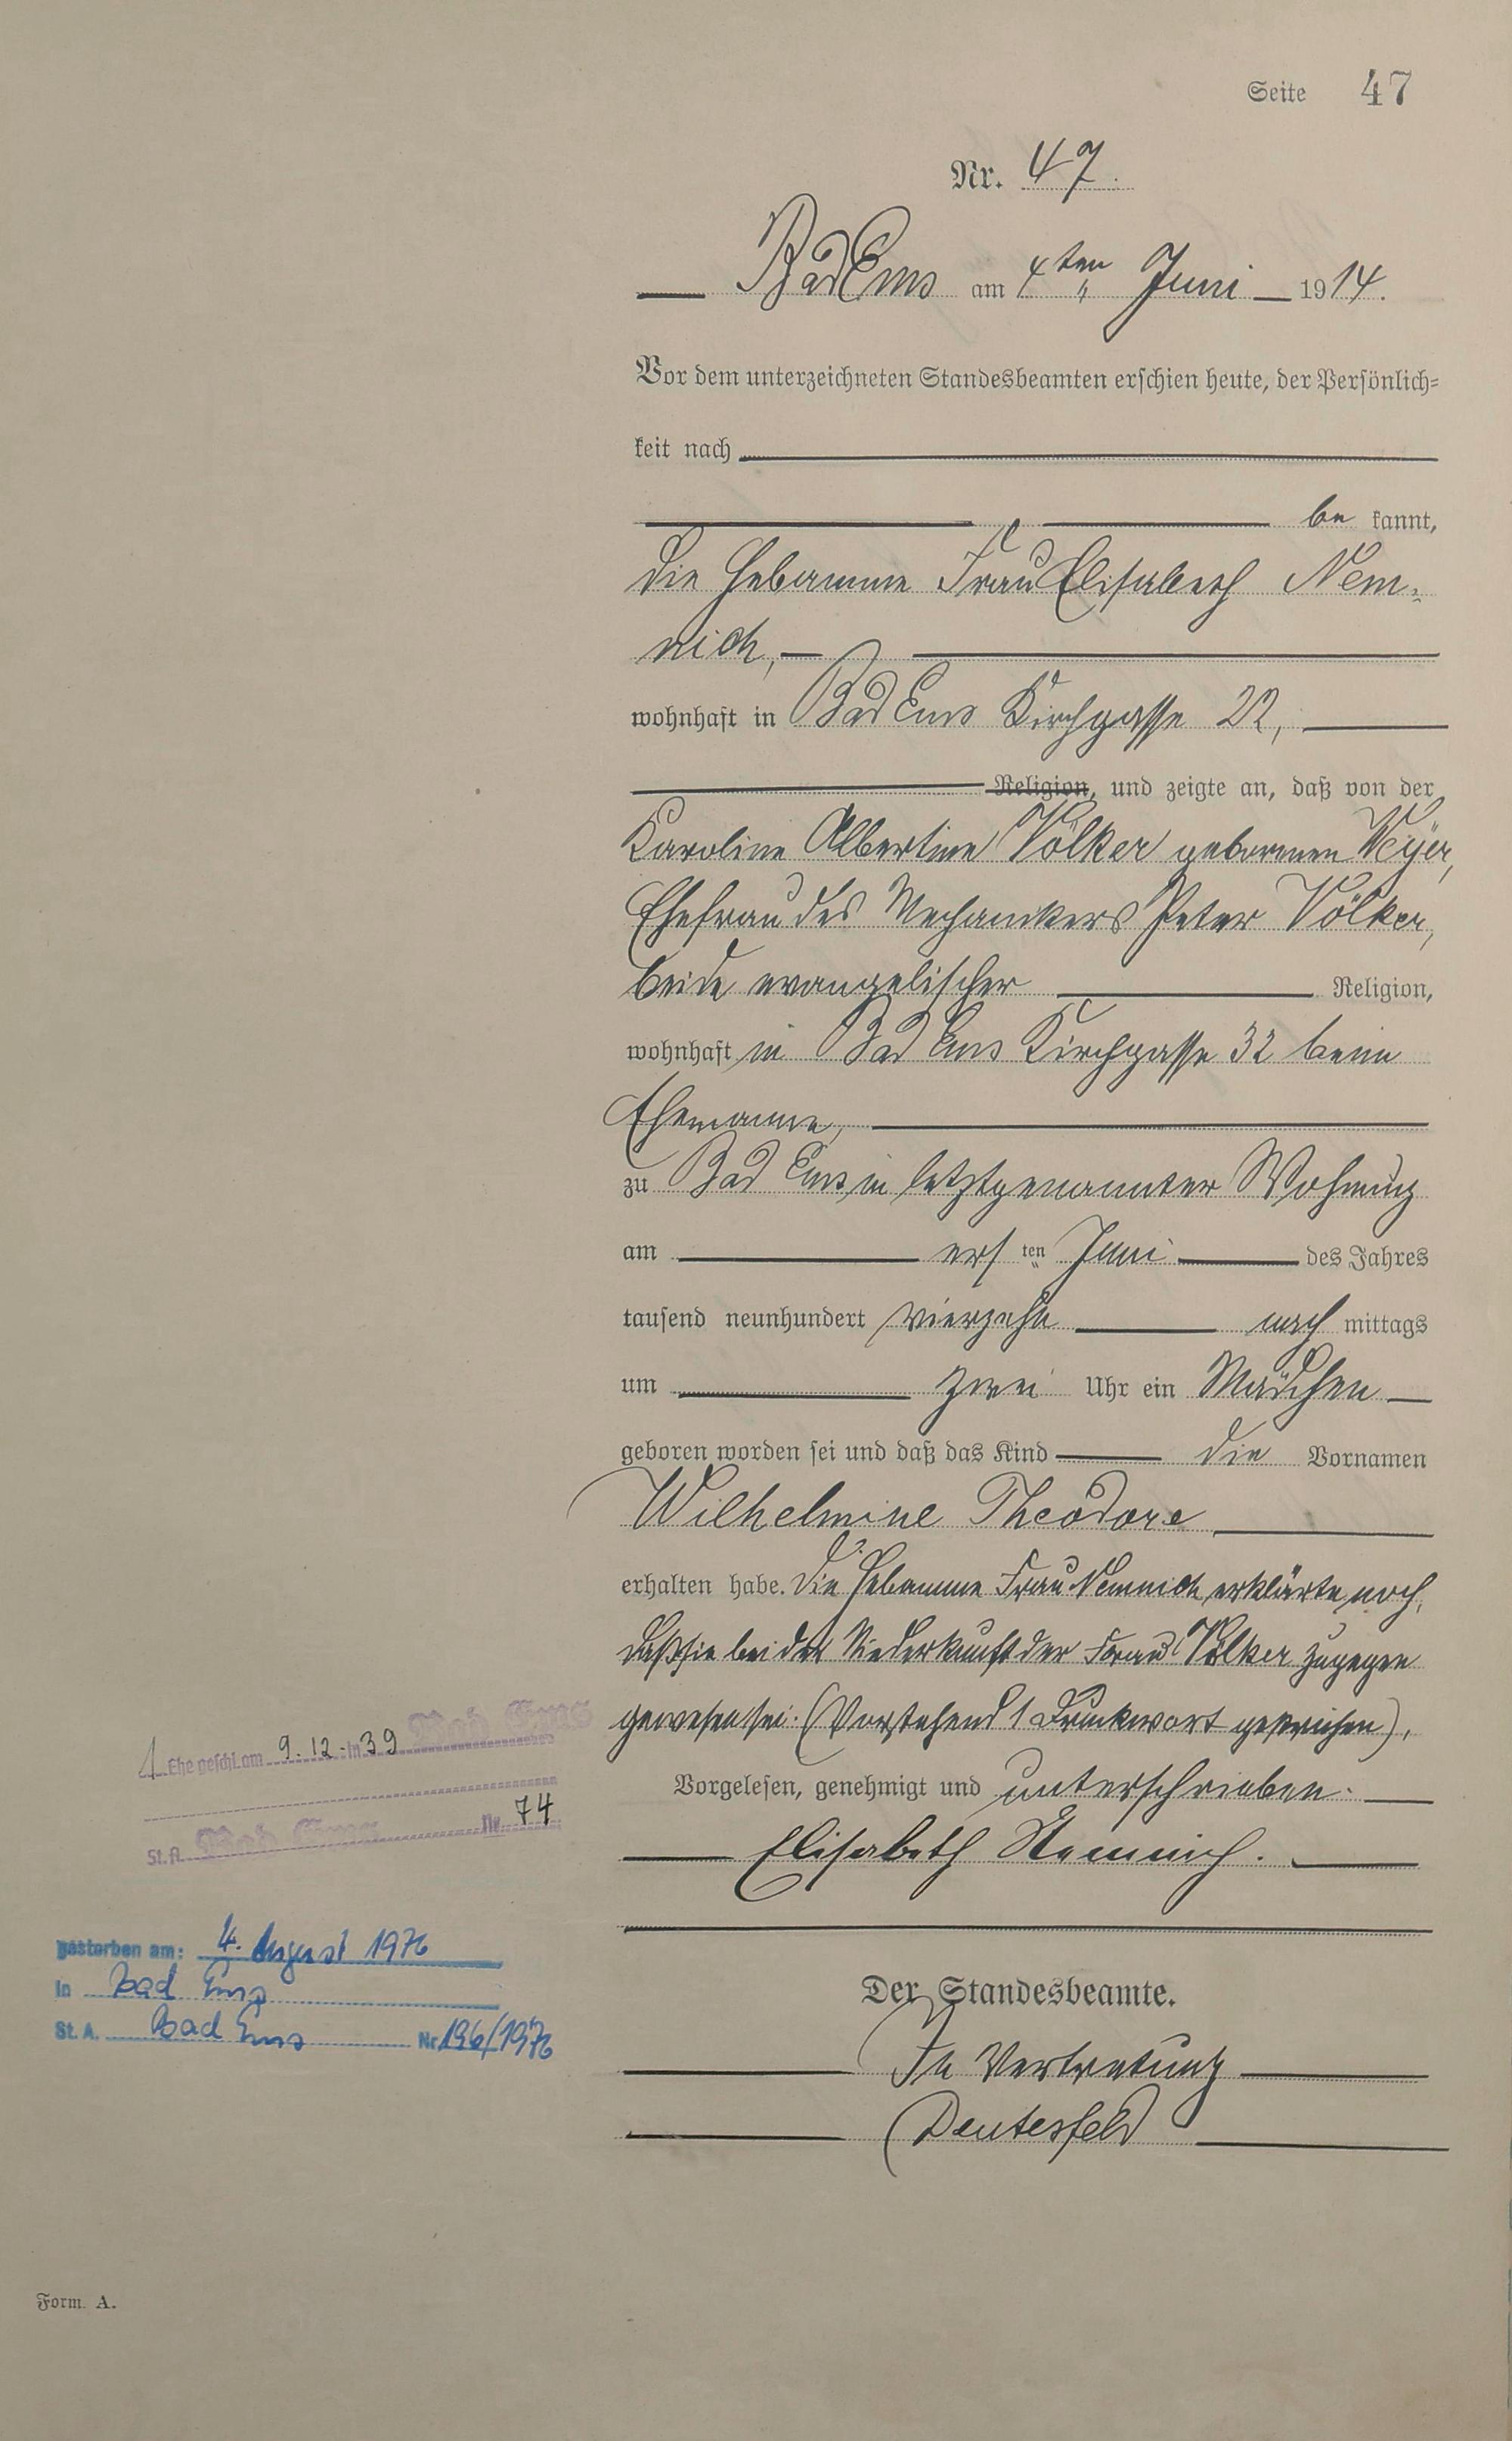 Seite 47
Nr. 47.
Bad Ems am 4ten Juni 1914.
Vor dem unterzeichneten Standesbeamten erschien heute, der Persönlich=
keit nach
be kannt,
die Hebamme Frau Elisabeth Nem=
nich,
wohnhaft in Bad Ems Kirchgasse 22,
Religion, und zeigte an, daß von der
Karoline Albertine Völker geborenen Meyer,
Ehefrau des Mechanikers Peter Völker,
beide evangelischer Religion,
wohnhaft in Bad Ems Kirchgasse 32 beim
Ehemanne,
zu Bad Ems in letztgenannter Wohnung
am ersten Juni des Jahres
tausend neunhundert vierzehn nach mittags
um zwei Uhr ein Mädchen
geboren worden sei und daß das Kind die Vornamen
Wilhelmine Theodore
erhalten habe. Die Hebamme Frau Nemnich erklärte noch,
daß sie bei der Niederkunft der Frau Völker zugegen
gewesen sei. (Vorstehend 1 Druckwort gestrichen),
Vorgelesen, genehmigt und unterschrieben.
Elisabeth Nemnich.
Der Standesbeamte.
In Vertretung
Deutesfeld
1 Ehe geschl. am 9.12. in 39 Bad Ems
St. A. Bad Ems Nr. 74
gestorben am: 4. August 1976
In Bad Ems
St. A. Bad Ems Nr 196/1976
Form. A.